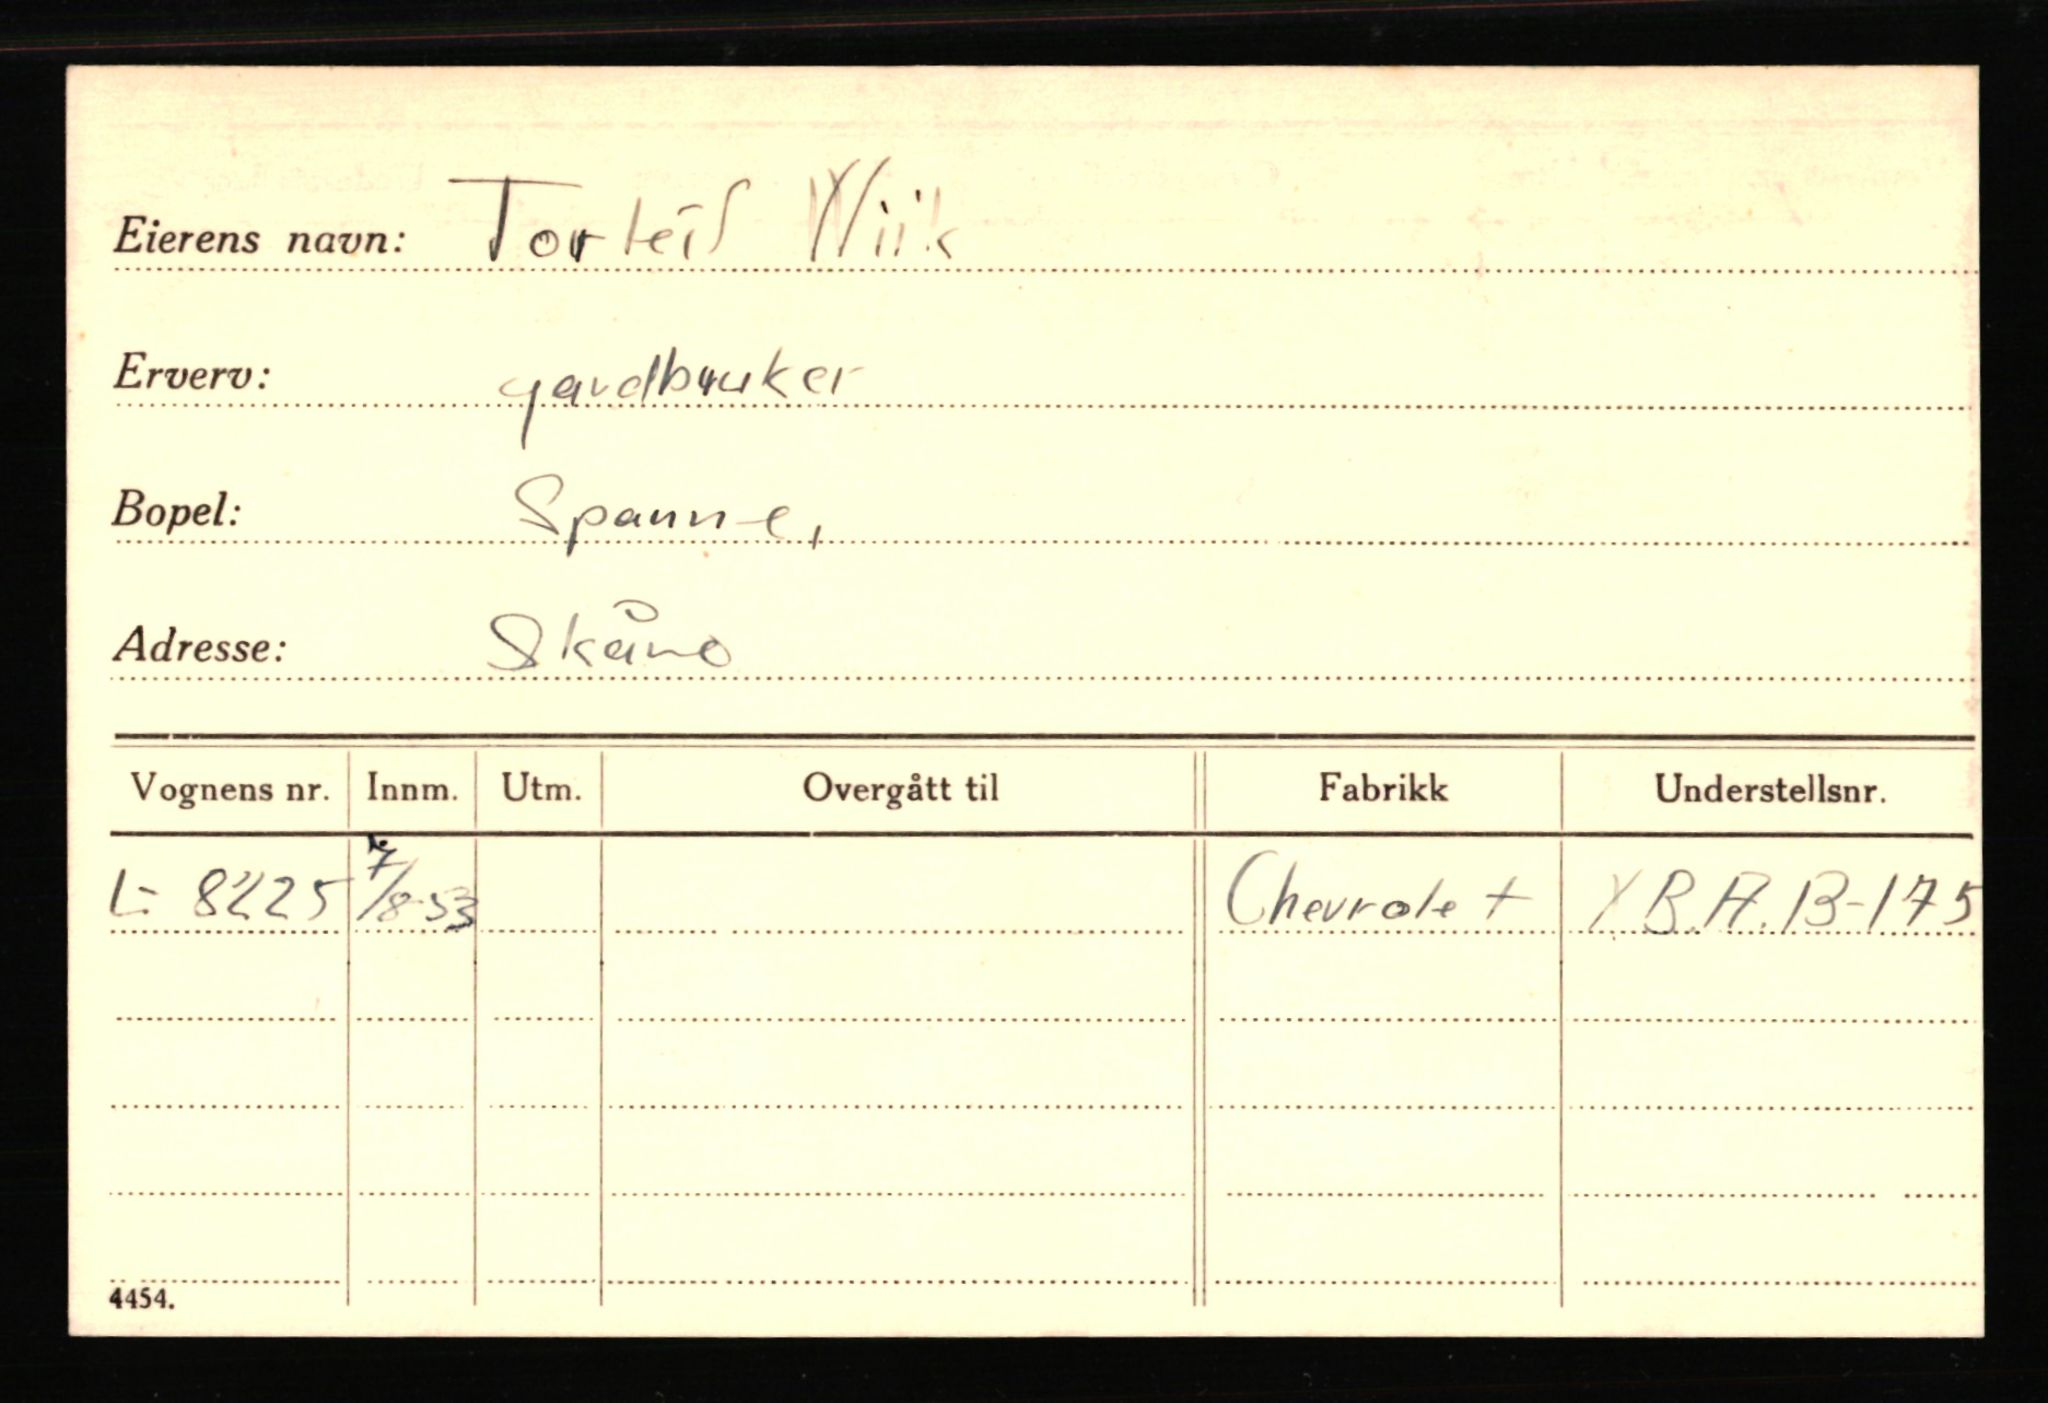 Eierens navn: Torleif Wiik
Erverv: gardbruker
Bopel: Spanne,
Adresse: Skåno
Vognens nr. Innm. Utm. Overgått til Fabrikk Understellsnr.
L- 8225 7/8-53 Chevrolet Y B.A. 13-175
4454.